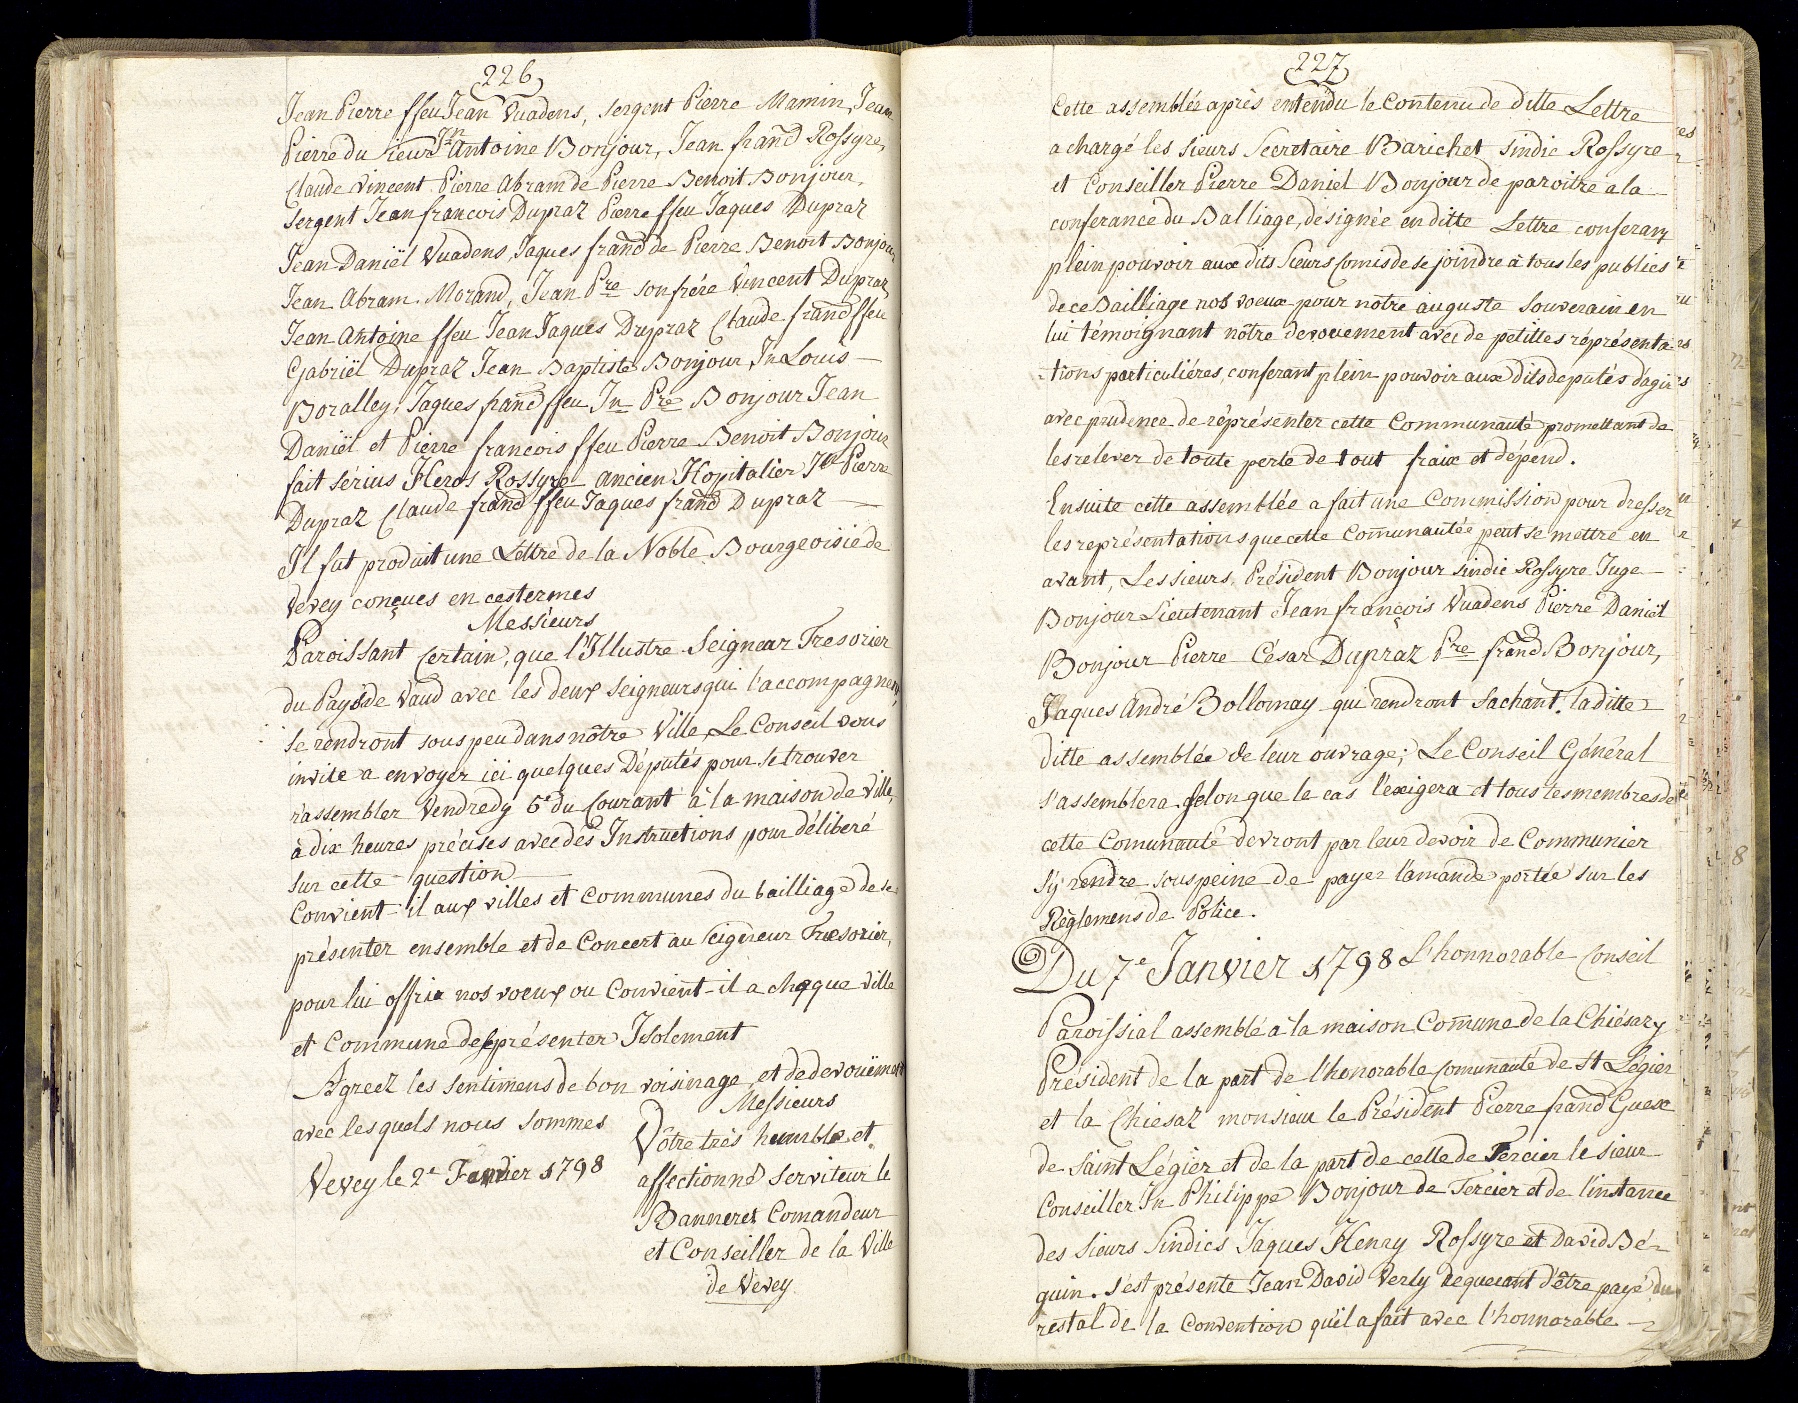 226
Jean Pierre ffeu Jean Vuadens, sergent Pierre Mamin, Jean
Pierre du sieur Jn Antoine Bonjour, Jean frand Rossyre,
Claude Vincent Pierre Abram de Pierre Benoit Bonjour,
sergent Jean francois Dupraz Pierre ffeu Jaques Dupraz
Jean Daniël Vuadens, Jaques frand de Pierre Benoit Bonjour
Jean Abram Morand, Jean Pre son frére Vincent Dupraz
Jean Antoine ffeu Jean Jaques Dupraz Claude frand ffeu
Gabriël Dupraz Jean Baptiste Bonjour Jn Louis
Boralley, Jaques frand ffeu Jn Pre Bonjour Jean
Daniël et Pierre francois ffeu Pierre Benoit Bonjour
fait sérius Heros Rossyre ancien Hopitalier Jn Pierre
Dupraz Claude frand ffeu Jaques frand Dupraz
Il fut produit une Lettre de la Noble Bourgeoisie de
Vevey conçues en cestermes
Messieurs
Paroissant certain, que l'Illustre Seigneur Tresorier
du Paÿs de Vaud avec les deux seigneurs qui l'accompagnent
se rendront sous peu dans nôtre Ville, Le Conseil vous
invite a envoyer ici quelques Députés pour se trouver
rassembler Vendredy 5e du Courant à la maison de Ville,
à dix heures précises avec des Instructions pour déliberé
sur cette question
Convient-il aux villes et communes du bailliage de se
présenter ensemble et de Concert au Seigneur Tresorier,
pour lui offrir nos voeux ou Convient-il a chaque ville
et Commune de se présenter Isolement
Agreez les sentimens de bon voisinage, et de devouëment
Messieurs
avec lesquels nous sommes
Vôtre très humble et
Vevey le 2e Janvier 1798
affectionné serviteur le
Banneret Comandeur
et Conseiller de la Ville
de Vevey
227
Cette assemblée après entendu le contenu de ditte Lettre
a chargé les sieurs Secretaire Barichet sindic Rossyre
et Conseiller Pierre Daniel Bonjour de paroitre a la
conferance du Balliage, désignée en ditte Lettre conferant
plein pouvoir aux dits Sieurs Comis de se joindre à tous les publics
de ce Bailliage nos voeux pour nôtre auguste Souverain en
lui témoignant nôtre devouement avec de petittes répresenta
-tions particuliéres, conferant plein pouvoir aux dits deputés d'agir
avec prudence de répresenter cette Communauté promettant de
les relever de toute perte de tout fraix et dépend.
Ensuite cette assemblée a fait une Commission pour dresser
les représentations que cette Comunautée peut se mettre en
avant, Les sieurs Président Bonjour sindic Rossyre Juge
Bonjour Lieutenant Jean françois Vuadens Pierre Daniël
Bonjour Pierre César Dupraz Pre frand Bonjour,
Jaques André Bollomay qui rendront sachant la ditte
ditte assemblée de leur ouvrage; Le Conseil Général
s'assemblera selon que le cas l'exigera et tous les membres de
cette Comunauté devront par leur devoir de Communier
s'y rendre sous peine de payer l'amande portée sur les
Règlemens de Police.
Du 7e Janvier 1798 L'honnorable Conseil
Paroissial assemblé à la maison Comune de la Chiésaz
Président de la part de l'honorable comunauté de St Légier
et la Chiesaz monsieur le Président Pierre frand Guex
de Saint Légier et de la part de celle de Tercier le sieur
Conseiller Jn Philippe Bonjour de Tercier et de l'instance
des sieurs sindics Jaques Henry Rossyre et David Bé-
guin. s'est présente Jean David Verly requerant d'être payé du
restal de la Convention qu'il a fait avec l'honnorable